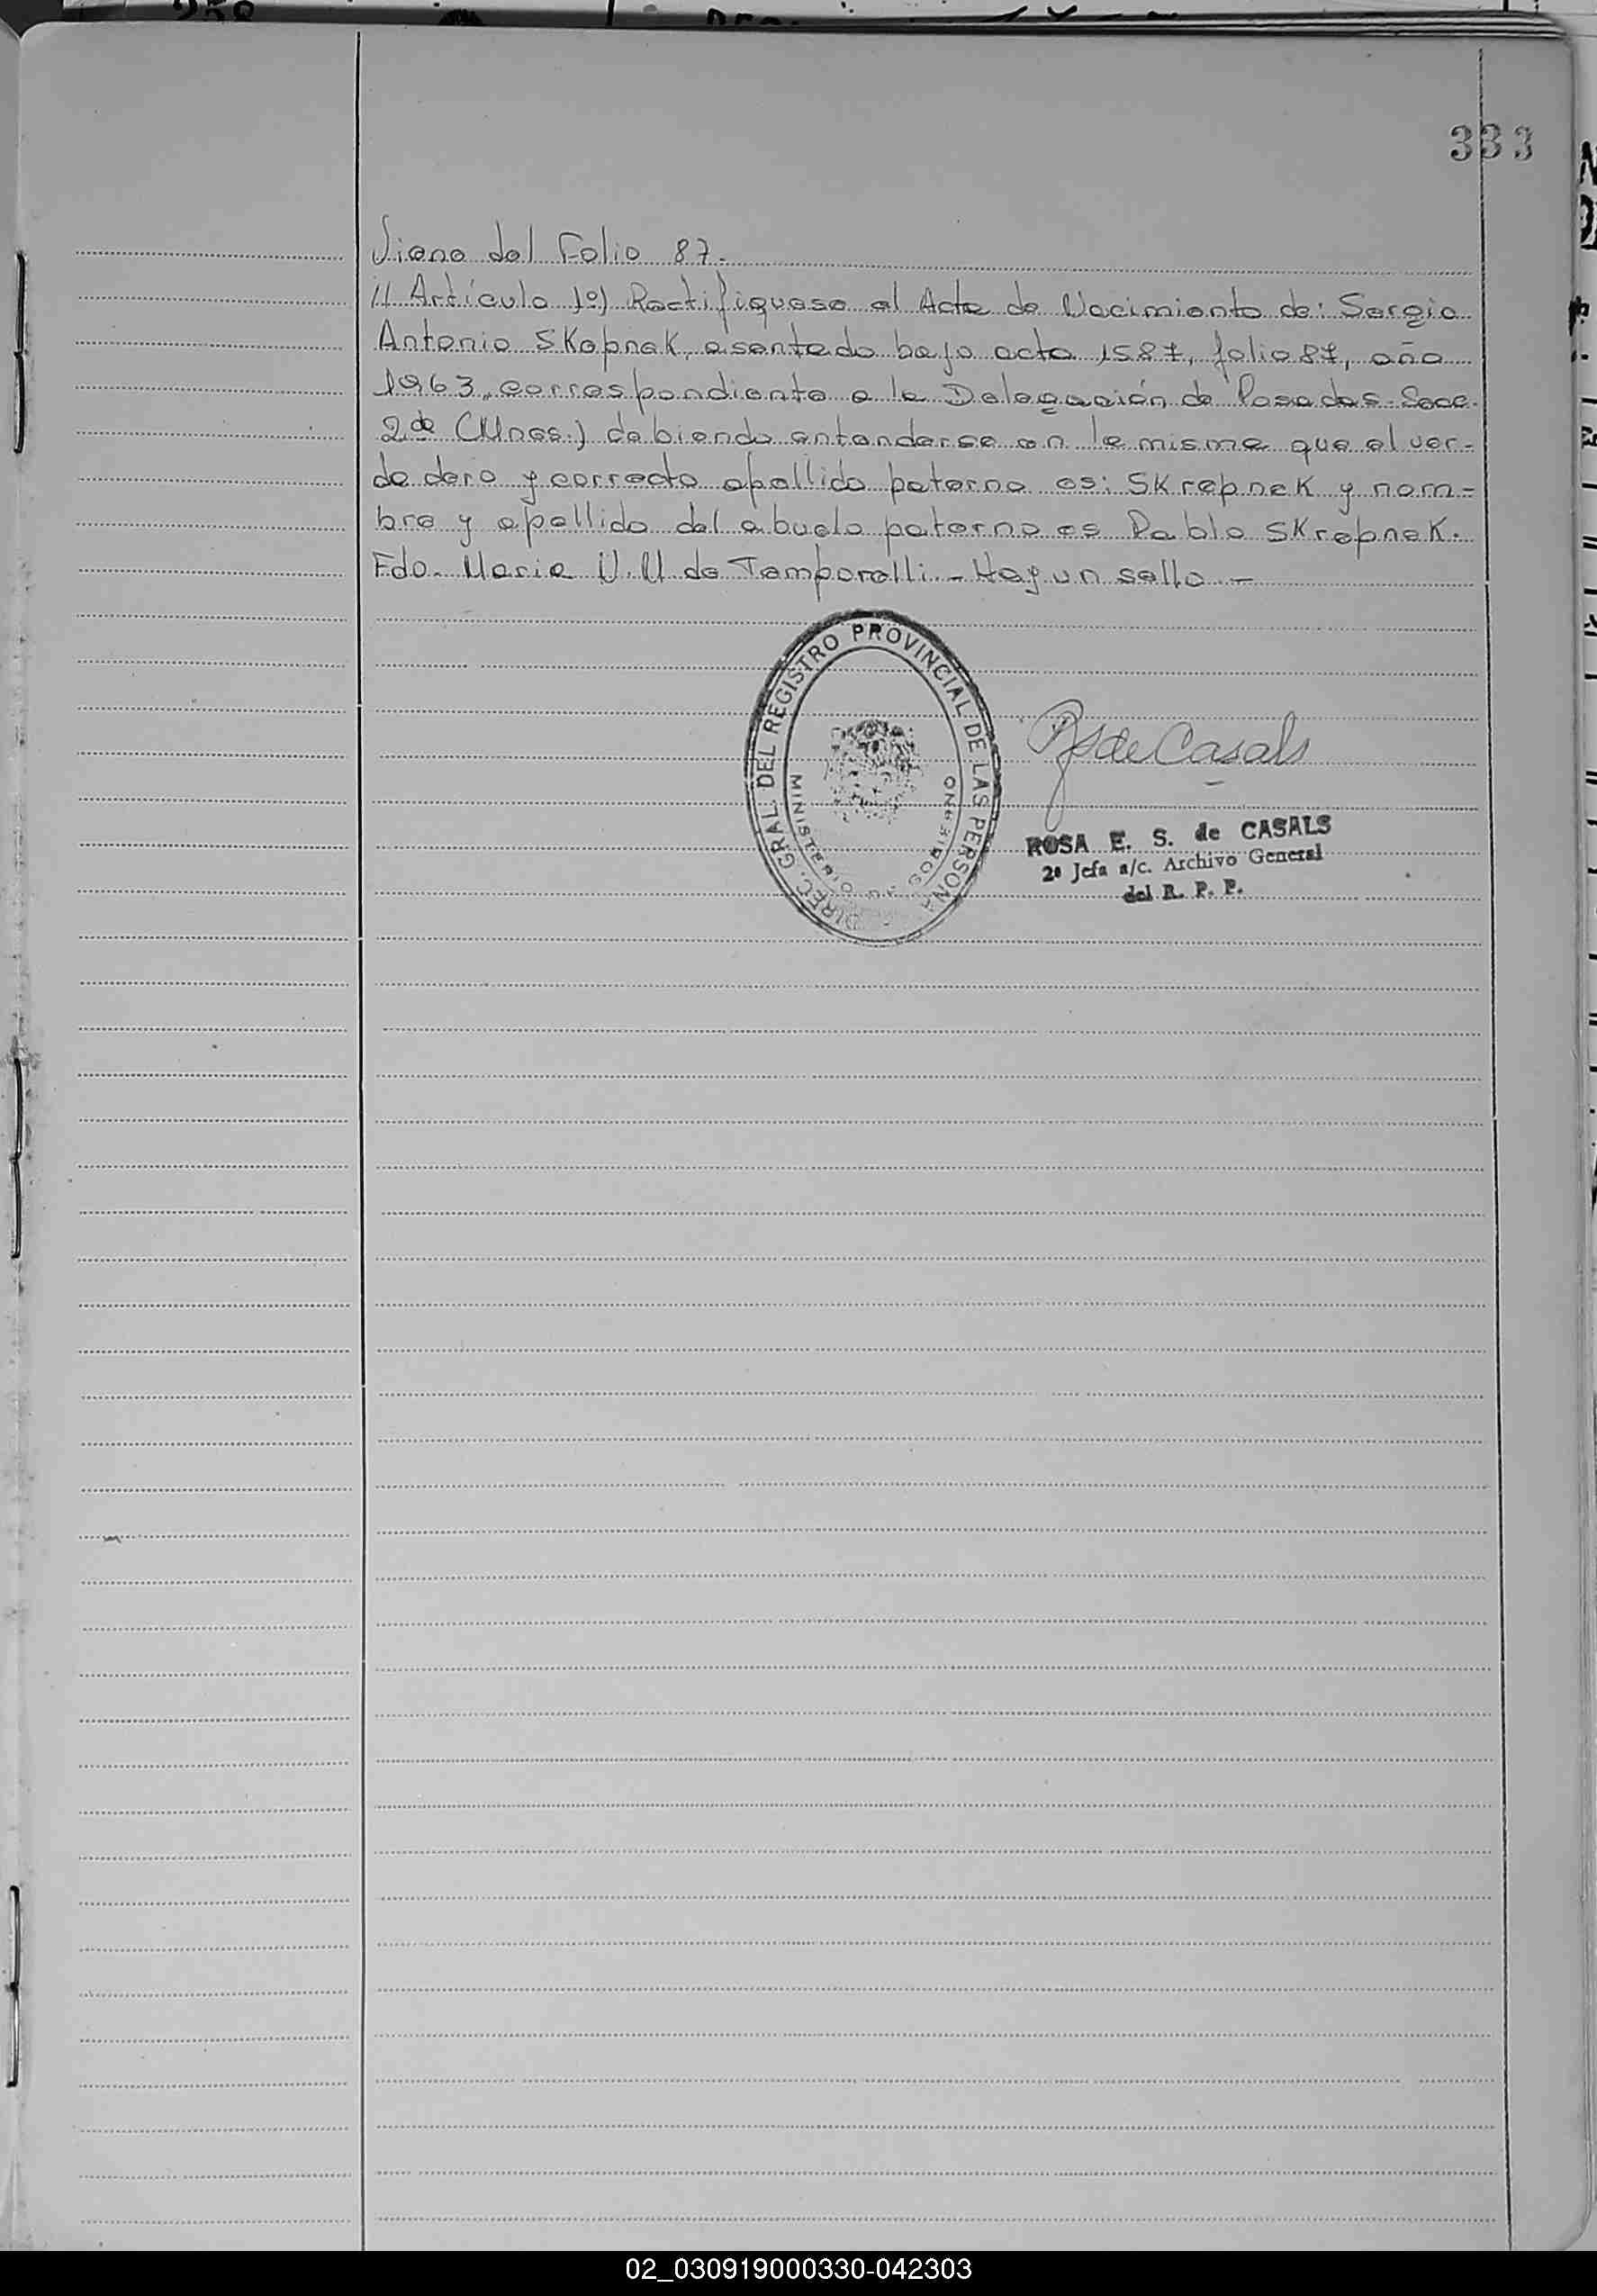 333
Viene del Folio 87.-
// Artículo 1º) Rectifiquese el Acta de Nacimiento de: Sergio
Antonio SKepneK, asentado bajo acta 1587, folio 87, año
1963, correspondiente a la Delegación de Posadas-Secc.
2da (Mnes.) debiendo entenderse en la misma que el ver-
dadero y correcto apellido paterno es: SKrepneK y nom-
bre y apellido del abuelo paterno es Pablo SKrepneK.
Fdo. Maria U. M de Temporelli - Hay un sello -
DIREC. GRAL. DEL REGISTRO PROVINCIAL DE LAS PERSONA
MINISTERIO DE GOBIERNO
R S de Casals
ROSA E. S. de CASALS
2ª Jefa a/c. Archivo General
del R. P. P.
02_030919000330-042303